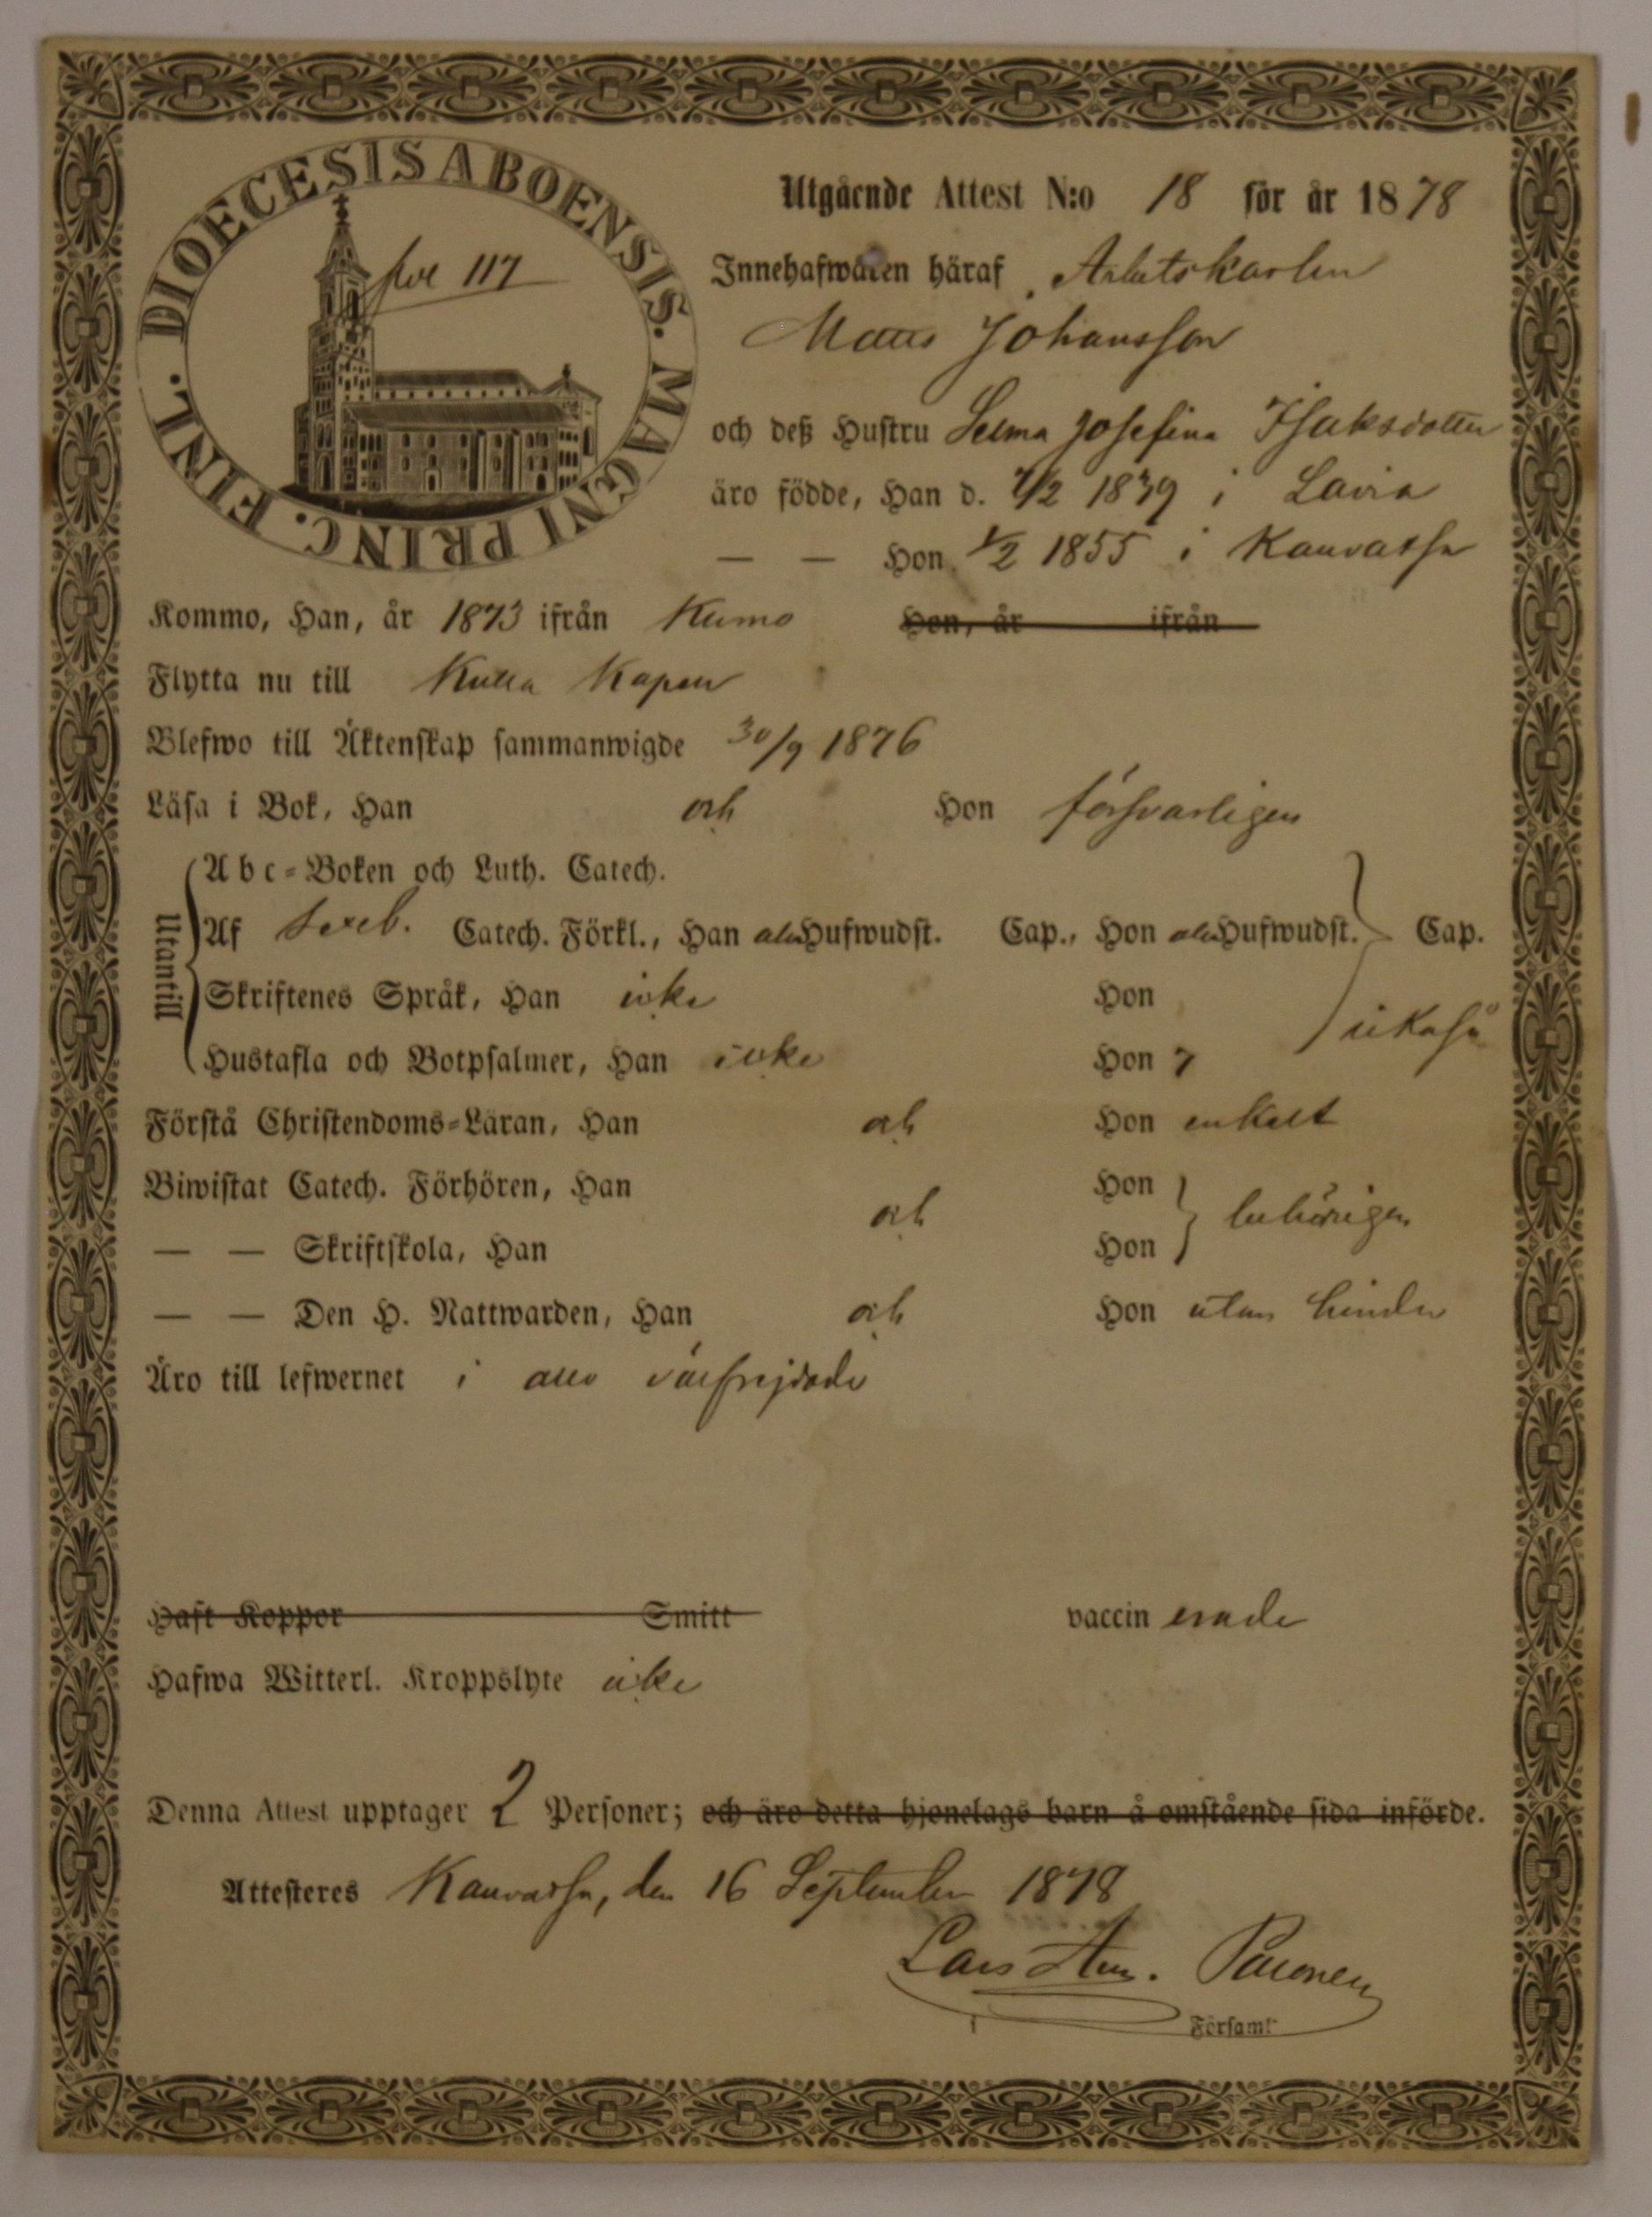 DIOECESIS ABOENSIS. MAGNI PRINC. FINL.
fol 117
Utgående Attest N:o 18 för år 1878
Innehafwaren häraf Arbetskarlen
Matts Johansson
och deß Hustru Selma Josefina Isaksdotter
äro födde, Han d. 7/2 1839 i Lavia
— — Hon 1/2 1855 i Kauvatsa
Kommo, Han, år 1873 ifrån Kumo Hon, år ifrån
Flytta nu till Kulla Kapell
Blefwo till Äktenskap sammanwigde 30/9 1876
Läsa i Bok, Han och Hon försvarligen
Utantill
Abc-Boken och Luth. Catech.
Af Sveb. Catech. Förkl., Han alla Hufwudst. Cap., Hon alla Hufwudst. Cap.
Skriftenes Språk, Han icke Hon
likaså
Hustafla och Botpsalmer, Han icke Hon
Förstå Christendoms-Läran, Han och Hon enkelt
Biwistat Catech. Förhören, Han Hon
och behörigen
— — Skriftskola, Han Hon
— — Den H. Nattwarden, Han och Hon utan hinder
Äro till lefwernet i allo välfrejdade
Haft Koppor Smitt vaccinerade
Hafwa Witterl. Kroppslyte icke
Denna Attest upptager 2 Personer; och äro detta hjonelags barn å omstående sida införde.
Attesteres Kauvatsa, den 16 September 1878
Lars
Församl